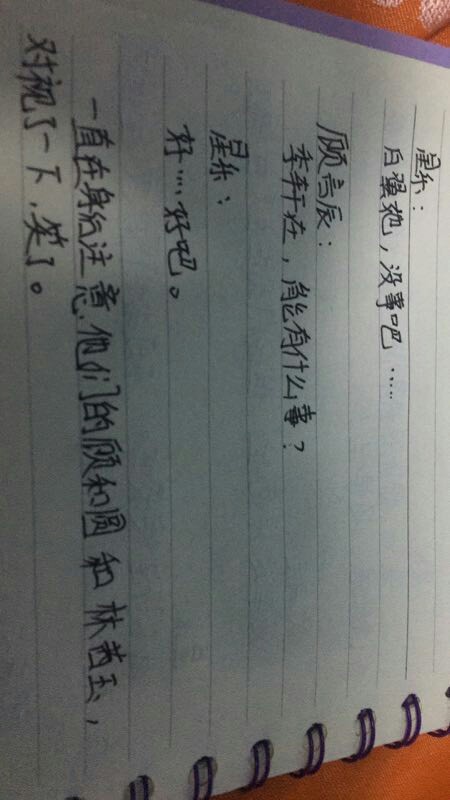 星乐：
白翼她，没事吧……
顾言辰：
季轩在，能有什么事？
星乐：
好……好吧。
一直在身后注意他们的顾和圆和林茜玉，
对视了一下，笑了。